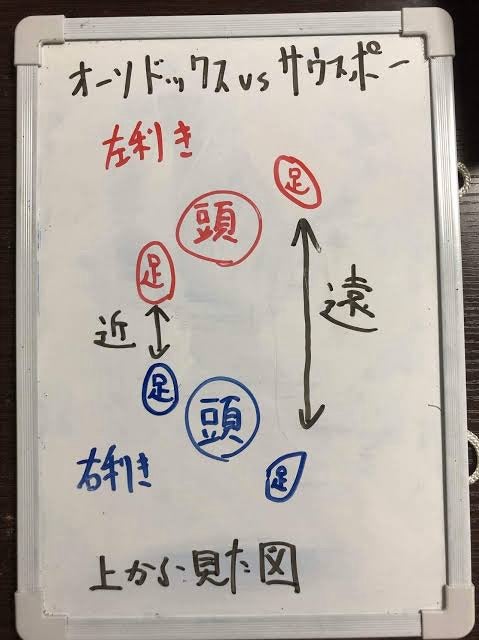 オーソドックスvsサウスポー
左利き
足
頭
足
近
遠
足
頭
足
右利き
上から見た図